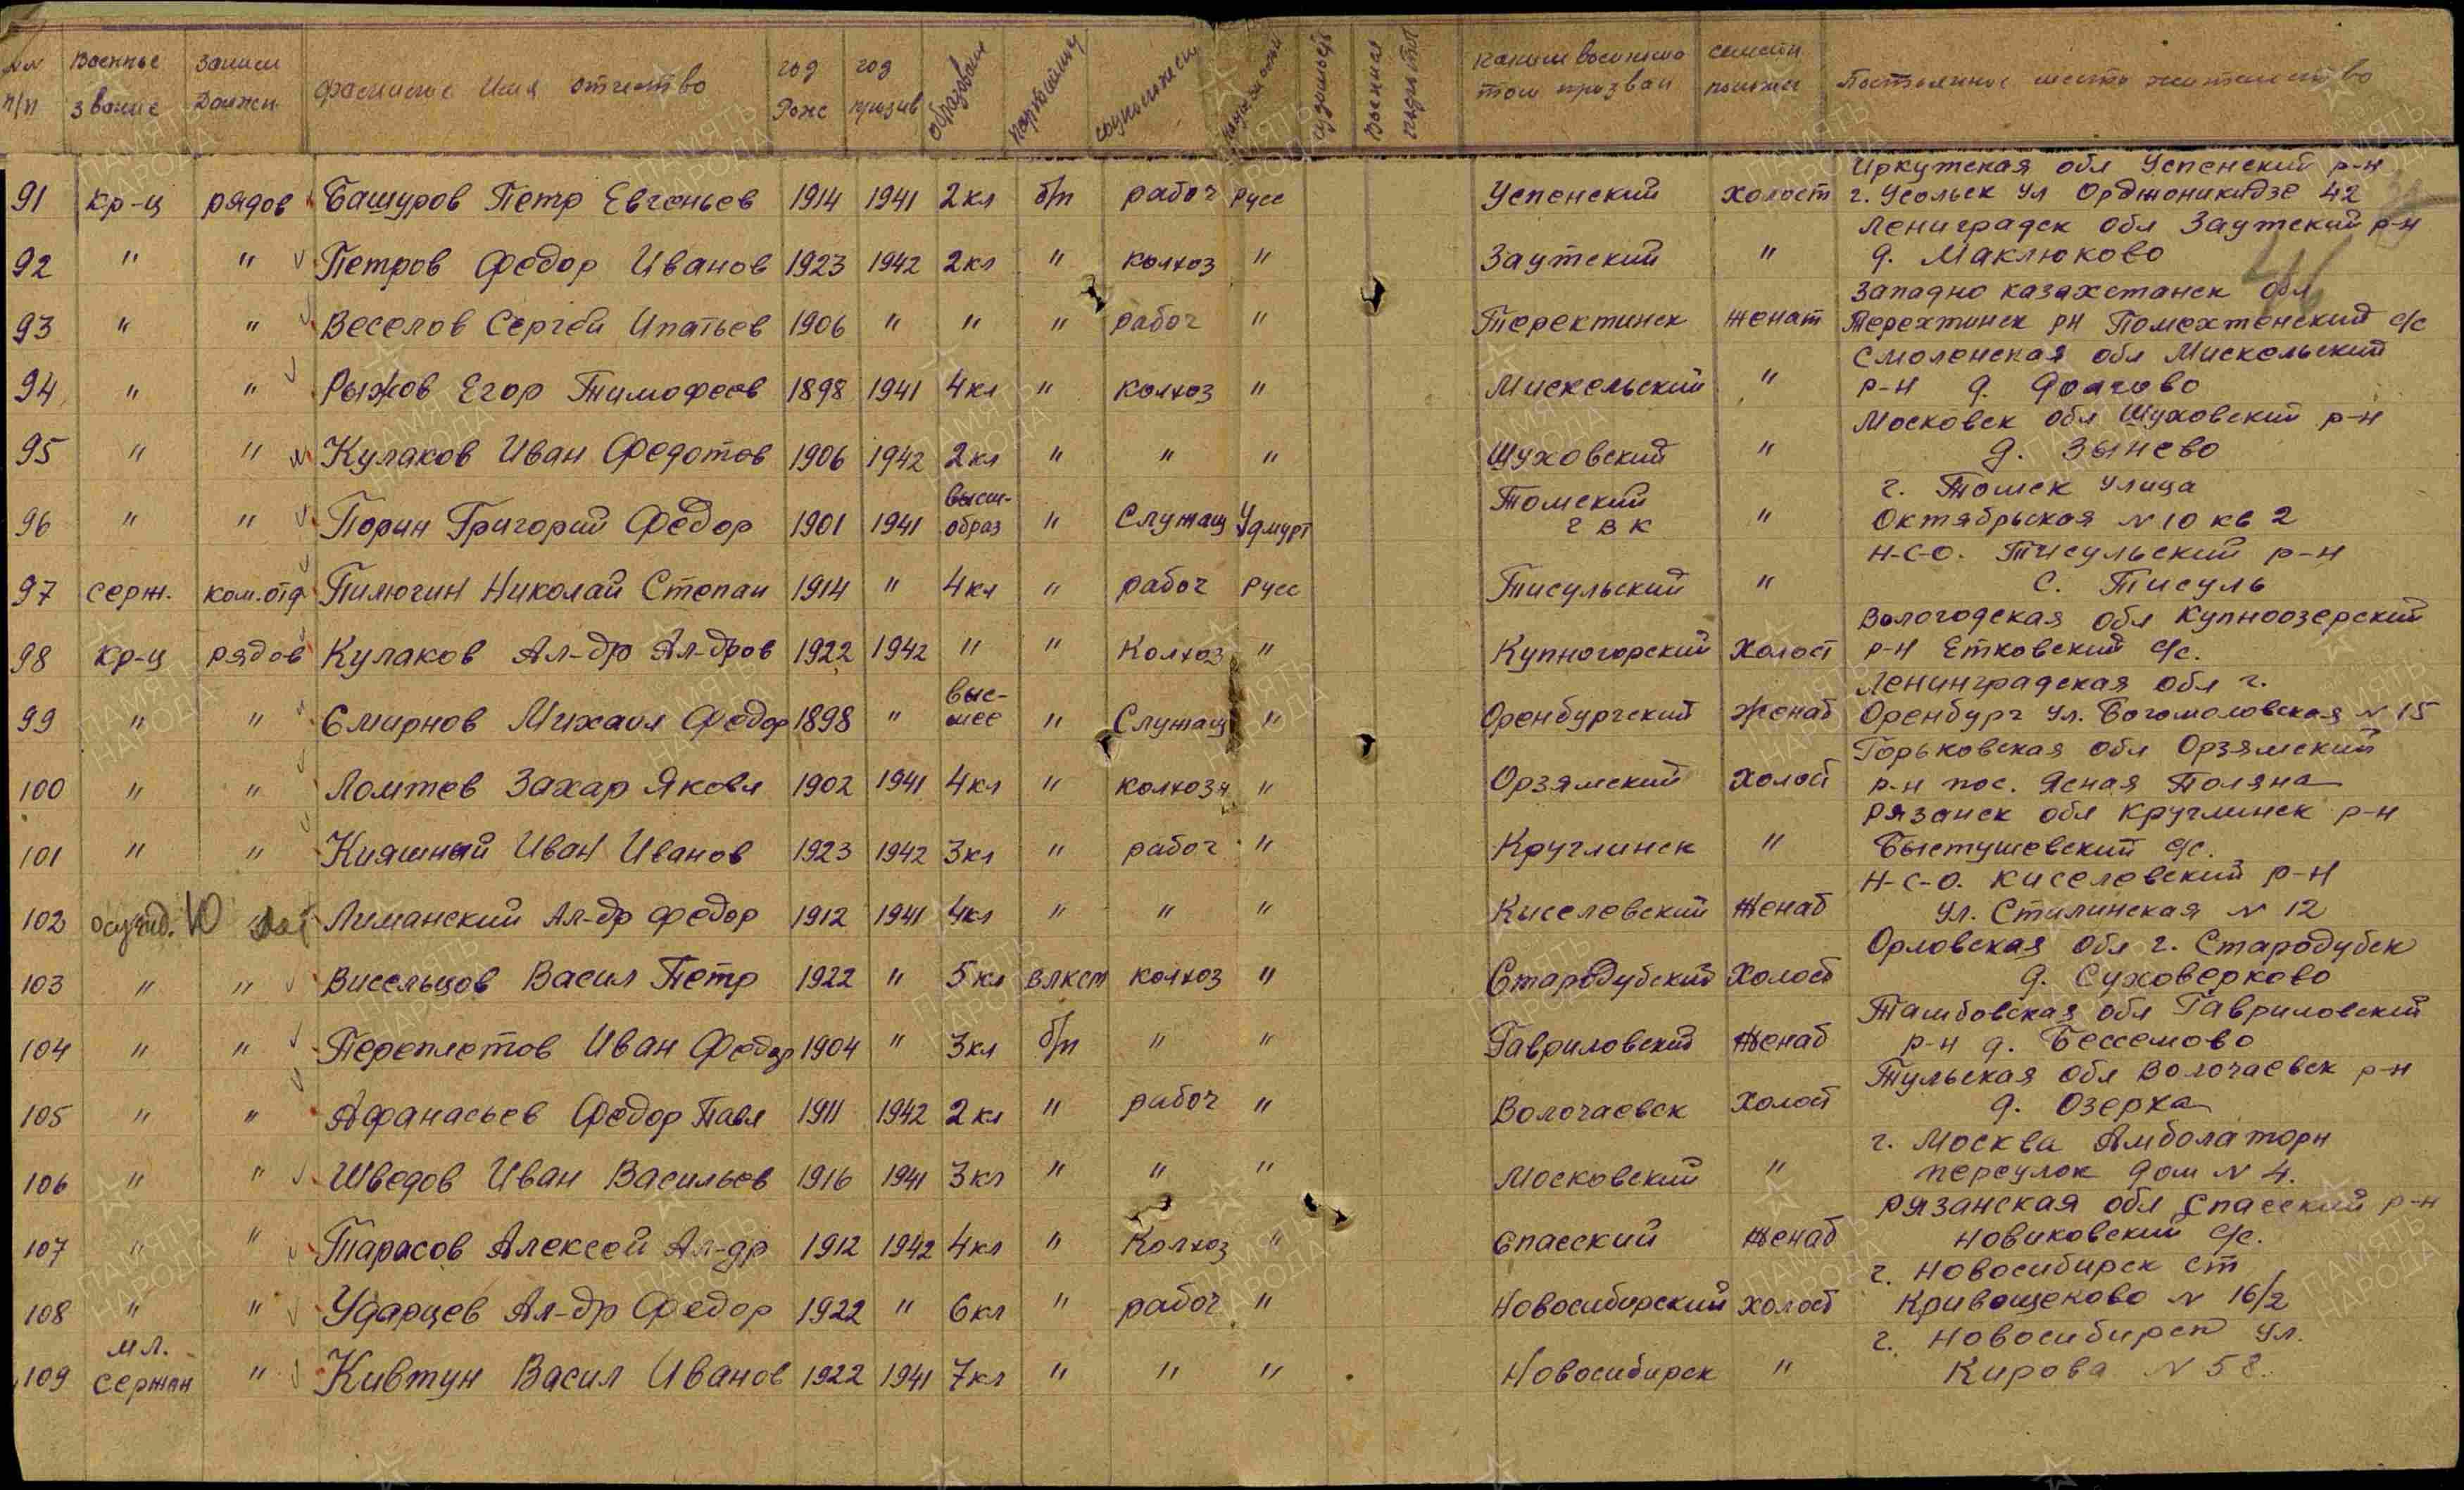 NN п/п Военные звание Заним должн Фамилие Имя Отчество год Рожс год призыв образован партийную соцположен судимость Военная каким военкомо том призван семейн положен Постоянное место жительство
Иркутская обл Успенский р-н
91 кр-ц рядов Башуров Петр Евгеньев 1914 1941 2кл б/п рабоч Русс Успенский холост г. Усольск ул Орджоникидзе 42
Ленинградск обл Заутский р-н
92 " " Петров Федор Иванов 1923 1942 2кл " колхоз " Заутский " д. Маклюково
Западно казахстанск обл
93 " " Веселов Сергей Ипатьев 1906 " " " рабоч " Теректинск женат Терехтинск рн Помехтенский с/с
Смоленская обл Мискольский
94 " " Рыжов Егор Тимофеев 1898 1941 4кл " колхоз " Мискельский " р-н д. Долгово
Московск обл Шуховский р-н
95 " " Кулаков Иван Федотов 1906 1942 2кл " " " Шуховский " д. Зынево
высш- Томский г. Томск улица
96 " " Порин Григорий Федор 1901 1941 образ " Служащ Удмурт Г В К " Октябрьская N 10 кв 2
Н-С-О. Тисульский р-н
97 серж. ком.отд Пилюгин Николай Степан 1914 " 4кл " рабоч Русс Тисульский " с. Тисуль
Вологодская обл Купноозерский
98 кр-ц рядов Кулаков Ал-др Ал-дров 1922 1942 " " Колхоз " Купногорский Холост р-н Етковский с/с.
выс- Ленинградская обл г.
99 " " Смирнов Михаил Федор 1898 " шее " Служащ " Оренбургский Женат Оренбург ул. Богомоловская N 15
Горьковская обл Орзямский
100 " " Ломтев Захар Яковл 1902 1941 4кл " колхозн " Орзямский Холост р-н пос. Ясная Поляна
Рязанск обл Круглинск р-н
101 " " Кияшный Иван Иванов 1923 1942 3кл " рабоч " Круглинск " Быстушевский с/с.
Н-С-О. Киселевский р-н
102 осужд. Ю Лиманский Ал-др Федор 1912 1941 4кл " " " Киселевский Женат ул. Сталинская N 12
Орловская обл г. Стародубск
103 " " Висельцов Васил Петр 1922 " 5кл ВЛКСМ колхоз " Стародубский Холост д. Суховерково
Тамбовская обл Гавриловский
104 " " Переплетов Иван Федор 1904 " 3кл б/п " " Гавриловский Женат р-н д. Бессемово
Тульская обл Волочаевск р-н
105 " " Афанасьев Федор Павл 1911 1942 2кл " рабоч " Волочаевск Холост д. Озерка
г. Москва Амболаторн
106 " " Шведов Иван Васильев 1916 1941 3кл " " " Московский " переулок дом N 4.
Рязанская обл Спасский р-н
107 " " Тарасов Алексей Ал-др 1912 1942 4кл " Колхоз " Спасский Женат Новиковский с/с.
г. Новосибирск ст
108 " " Ударцев Ал-др Федор 1922 " 6кл " рабоч " Новосибирский холост Кривощеково N 16/2
мл. г. Новосибирск ул.
109 сержан " Кивтун Васил Иванов 1922 1941 7кл " " " Новосибирск " Кирова N 58.